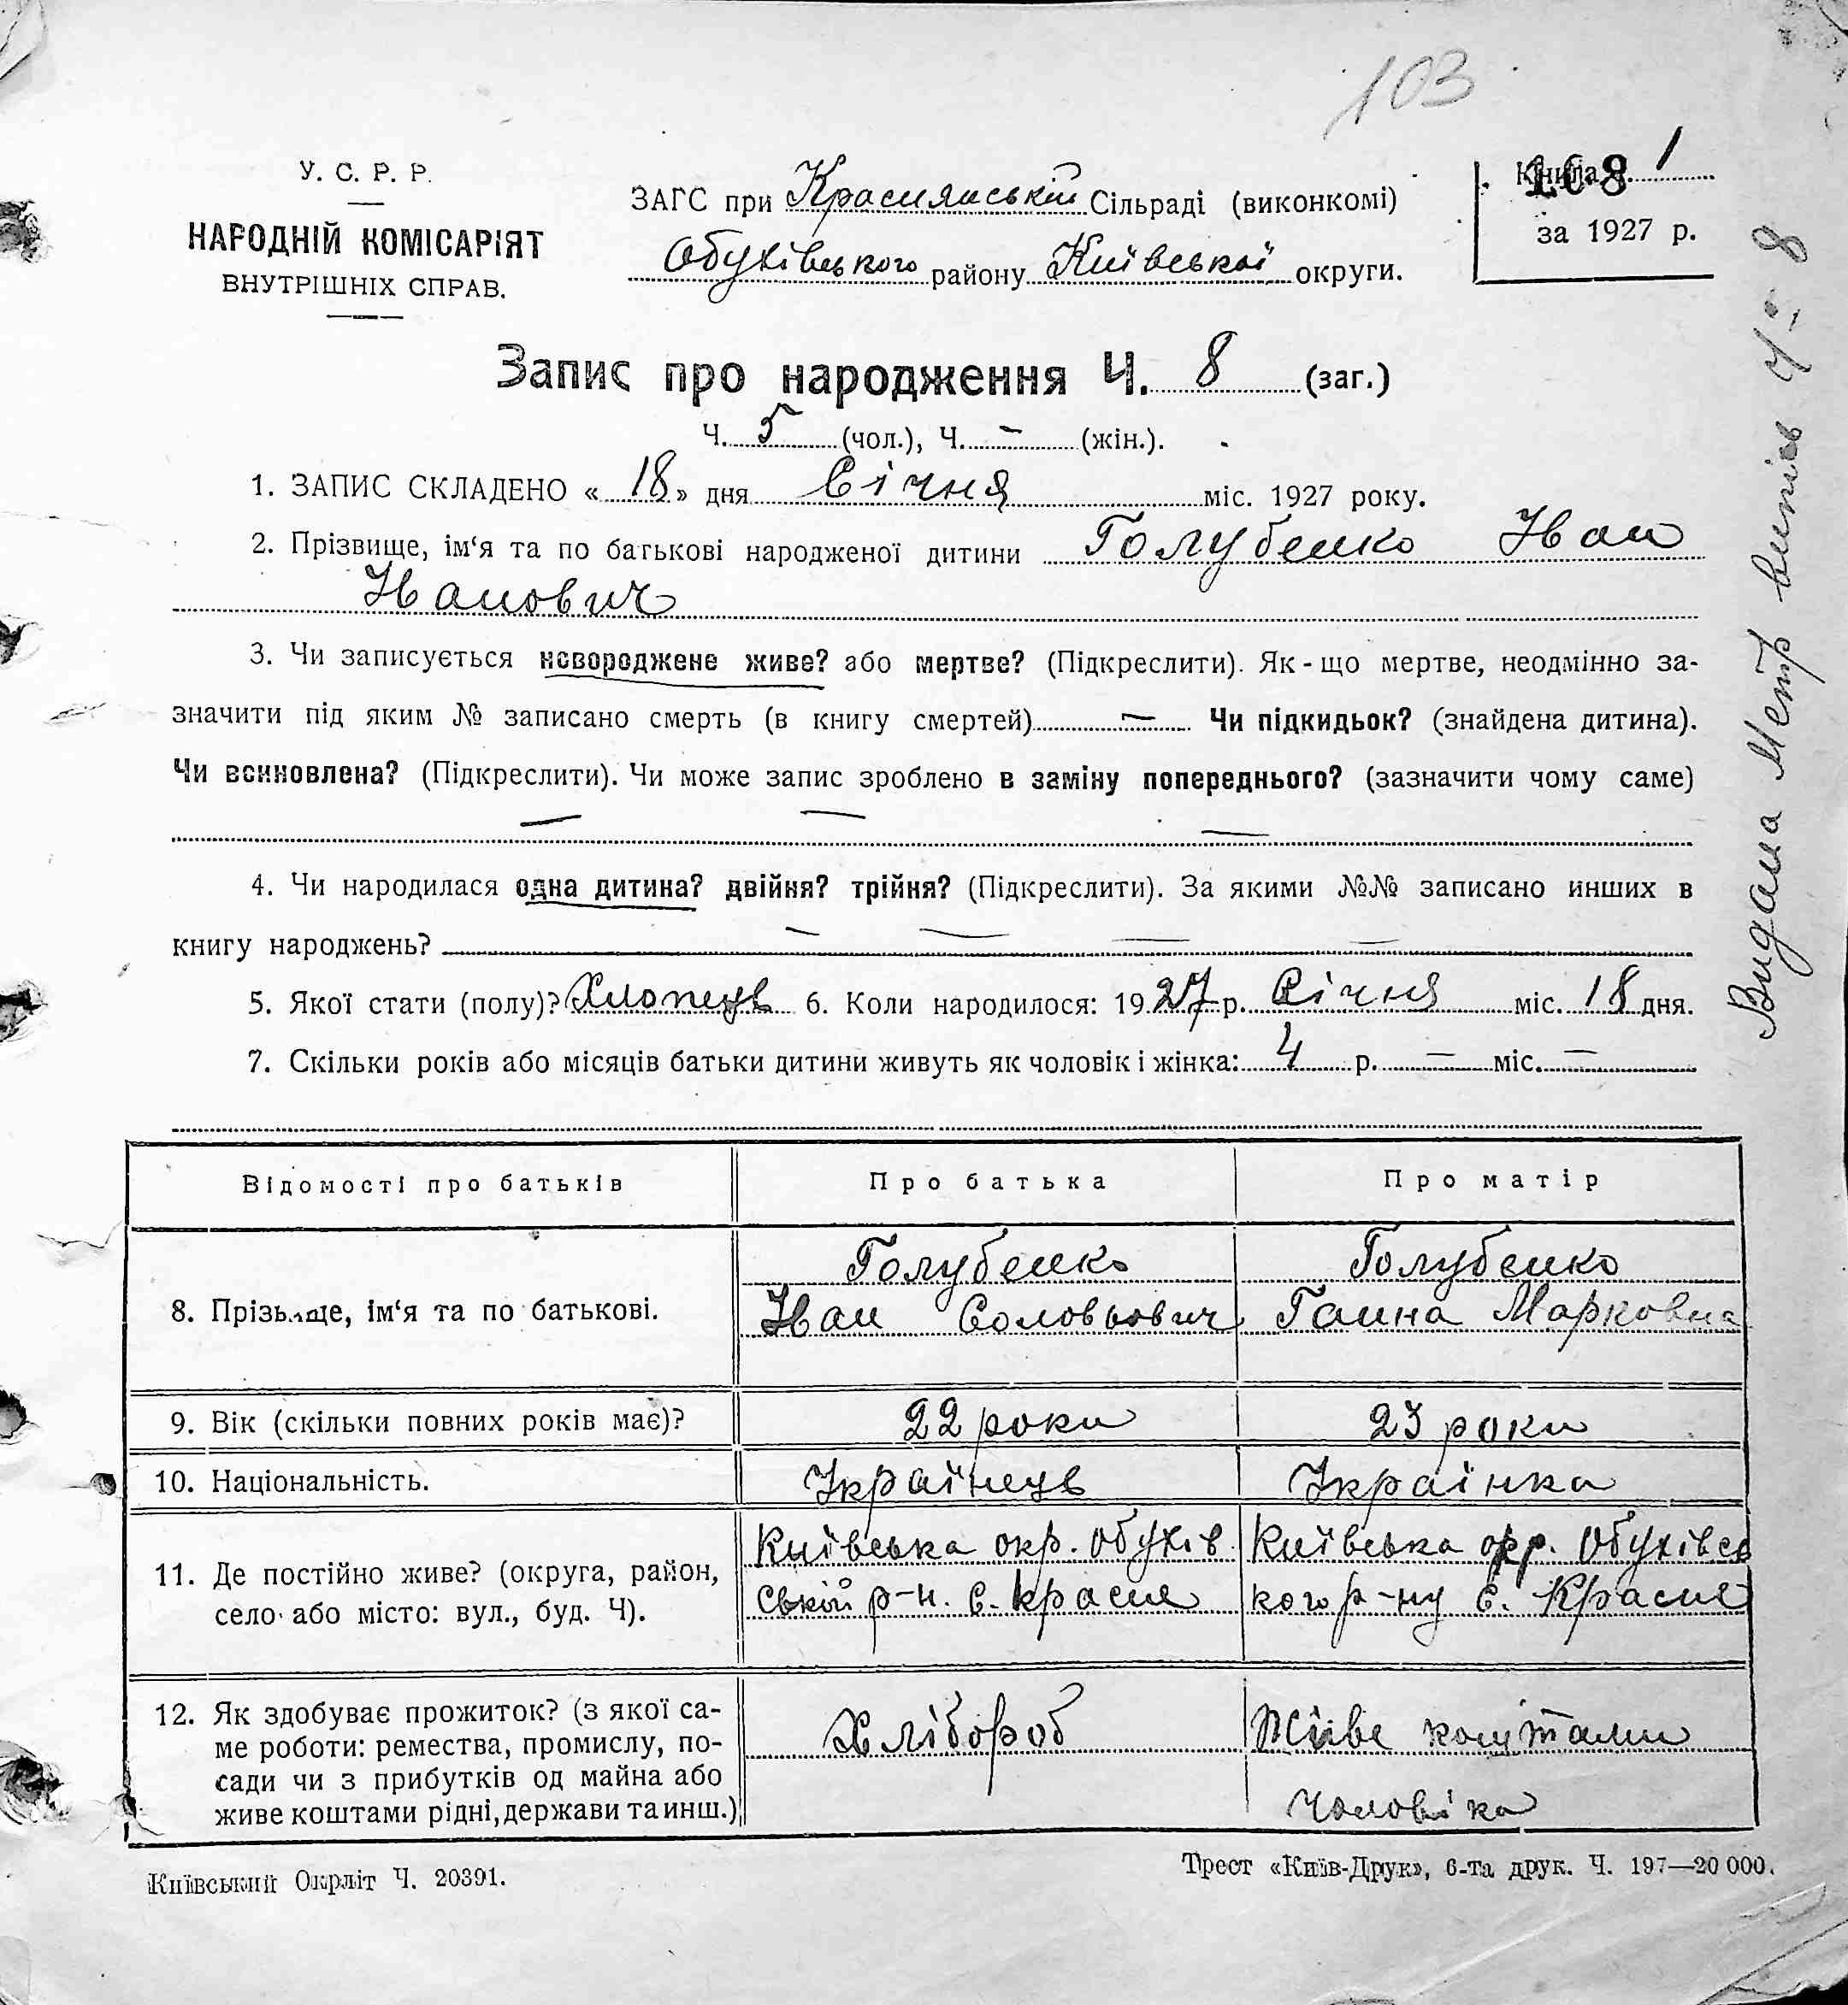 103
У. С. Р. Р.
НАРОДНІЙ КОМІСАРІЯТ
ВНУТРІШНІХ СПРАВ.
ЗАГС при Краснянській Сільраді (виконкомі)
Обухівського району Київської округи.
Книга 1
168
за 1927 р.
Запис про народження Ч. 8 (заг.)
Ч. 5 (чол.), Ч. – (жін.).
1. ЗАПИС СКЛАДЕНО « 18 » дня Січня міс. 1927 року.
2. Прізвище, ім‘я та по батькові народженої дитини Голубенко Иван
Иванович
3. Чи записується новороджене живе? або мертве? (Підкреслити). Як-що мертве, неодмінно за-
значити під яким № записано смерть (в книгу смертей) — Чи підкидьок? (знайдена дитина).
Чи всиновлена? (Підкреслити). Чи може запис зроблено в заміну попереднього? (зазначити чому саме)
— — —
4. Чи народилася одна дитина? двійня? трійня? (Підкреслити). За якими №№ записано инших в
книгу народжень? — — — —
5. Якої стати (полу)? Хлопець 6. Коли народилося: 1927 р. Січня міс. 18 дня.
7. Скільки років або місяців батьки дитини живуть як чоловік і жінка: 4 р. — міс. —
Відомості про батьків Про батька Про матір
8. Прізвище, ім‘я та по батькові.
Голубенко
Иван Соловьович
Голубенко
Ганна Марковна
9. Вік (скільки повних років має)? 22 роки 23 роки
10. Національність. Українець Українка
11. Де постійно живе? (округа, район,
село або місто: вул., буд. Ч).
Київська окр. Обухів
ський р-н. с. Красне
Київська окр. Обухівсь
кого р-ну с. Красне
12. Як здобуває прожиток? (з якої са-
ме роботи: ремества, промислу, по-
сади чи з прибутків од майна або
живе коштами рідні, держави та инш.)
Хлібороб
Живе коштами
чоловіка
Київський Окрліт Ч. 20391.
Трест «Київ-Друк», 6-та друк. Ч. 197—20 000.
Видана Метр випись Ч– 8